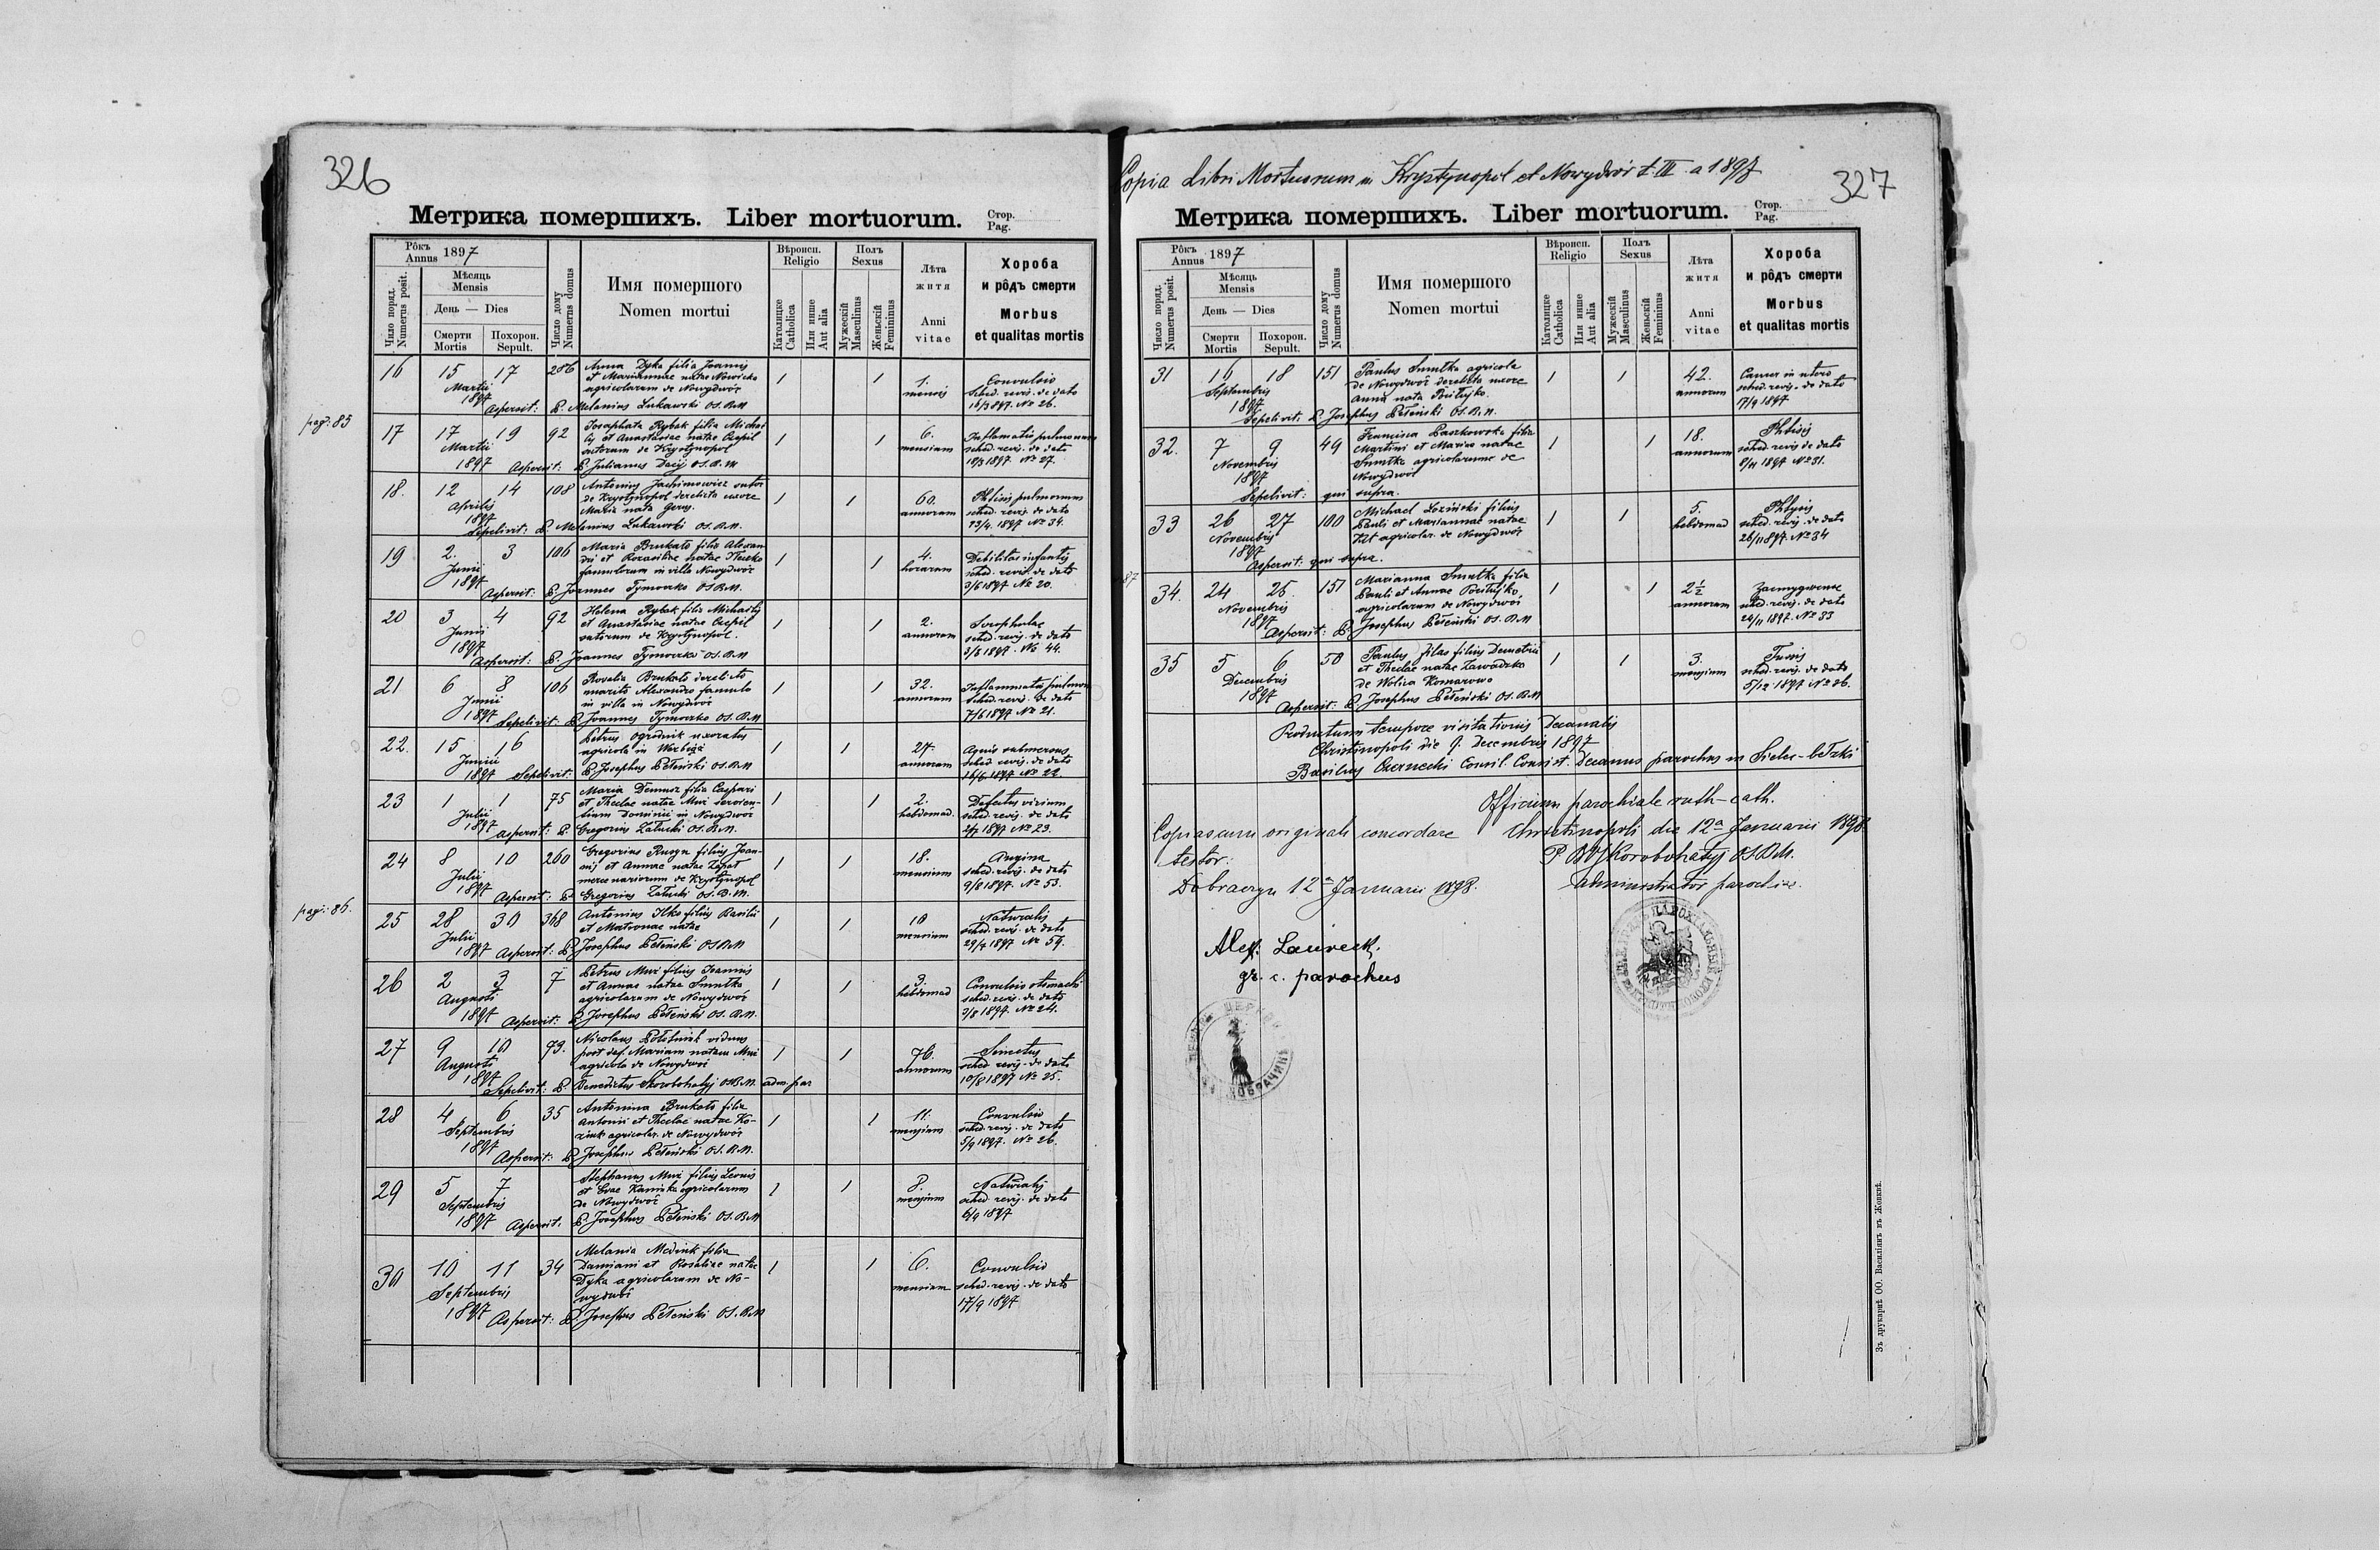 326
Метрика помершихъ. Liber mortuorum.
Стор.
Pag.
Рôкъ
Annus 1897
Число поряд.
Numerus posit.
Мѣсяць
Mensis
День — Dies
Смерти
Mortis
Похорон.
Sepult.
Число дому
Numerus domus
Имя помершого
Nomen mortui
Вѣроисп.
Religio
Католицке
Catholica
Или инше
Aut alia
Полъ
Sexus
Мужескій
Masculinus
Женьскій
Femininus
Лѣта
житя
Anni
vitae
Хороба
и рôдъ смерти
Morbus
et qualitas mortis
16 15 17 286 Anna Dyka filia Joannis 1 1 1. Convulsio
Martii et Mariannae natae Nowicka mensis sched. revis. de dato
1897 agricolarum de Nowydwór 16/3 897. № 26.
Aspersit: P. Melanius Lukawski OS. B.M
pag: 85
17 17 19 92 Josaphata Rybak filia Michae 1 1 6. Inflamatio pulmonum
Martii lis et Anastasiae natae Cespil mensium sched. revis. de dato
1897 sutorum de Krystynopol 19/3 1897 № 27.
Aspersit: P. Julianus Dacij OS. B. M
18. 12 14 108 Antonius Jachimowicz sutor 1 1 60. Phtisis pulmonum
Aprilis de Krystynopol derelicta uxore annorum sched. revis. de dato
1897 Maria nata Gerus. 13/4. 1897 № 34.
Sepelivit: P. Melanius Lukawski OS. B.M.
19 2. 3 106 Maria Brukato filia Alexan 1 1 4. Debilitas infantis
Junii dri et Rozaliae natae horarum sched. revis. de dato
1897 famulorum in villa Nowydwór 3/6 1897 № 20.
Aspersit: P. Joannes Tymoczko OSBM.
20 3 4 92 Helena Rybak filia Michaelis 1 1 2. Scrophulae
Junii et Anastasiae natae Cespil annorum sched. revis. de dato
1897 sutorum de Krystynopol. 3/6 1897. № 44.
Aspersit: P. Joannes Tymoczko OS. B.M
21 6 8 106 Rosalia Brukato derelicto 1 1 32. Inflammatio pulmon
Junii marito Alexandro famulo annorum sched. revis. de dato
1897 in villa in Nowydwór 7/6 1897 № 21.
Sepelivit: P. Joannes Tymoczko OS. B.M
22. 15 16 Petrus Ogrodnik uxoratus 1 1 27. Aquis submersus
Junii agricola in annorum sched. revis. de dato
1897 Sepelivit: P. Josephus Peteński OS. B.M 16/6 1897 № 22
23 1 1 75 Maria Demusz filia Caspari 1 1 2. Defectus virium
Julii et Theclae natae Mui servien- hebdomad. sched. revis. de dato
1897 tium Dominii in Nowydwór 2/7 1897 № 23.
Aspersit: P. Gregorius Załucki OS. B.M.
24 8 10 260 Gregorius Rusyn filius Joan- 1 1 18. Angina
Julii nis et Annae natae mensium sched. revis. de dato
1897 mercenariorum de Krystynopol 9/8 1897. № 53.
Aspersit: P. Gregorius Załucki OS. B.M.
pag: 86.
25 28 30 368 Antonius Ilko filius Basilii 1 1 10 Naturalis
Julii et Matronae natae mensium sched. revis. de dato
1897 Aspersit: P. Josephus Peteński OSBM 29/7 1897 № 59.
26 2 3 7 Petrus Mui filius Joannis 1 1 3. Convulsio stomachi
Augusti et Annae natae Smutka hebdomad sched. revis. de dato
1897 agricolarum de Nowydwór 3/8 1897. № 24.
Aspersit: P. Josephus Peteński OS. B.M.
27 9 10 93. Nicolaus viduus 1 1 76. Senectus
Augusti post def. Mariam natam Mui annorum sched revis. de dato
1897 agricola de Nowydwór 10/8 1897 № 25.
Sepelivit: P. Benedictus Skorobohatyj OSBM. adm. par
28 4 6 35 Antonina Brukato filia 1 1 11. Convulsio
Septembris Antonii et Theclae natae Ko- mensium sched. revis. de dato
1897 agricolar. de Nowydwór 5/9 1897. № 26.
Aspersit: P. Josephus Peteński OS. B.M.
29 5 7 Stephanus Mui filius Leonis 1 1 8. Naturalis
Septembris et Evae Kaminka agricolarum mensium sched. revis. de dato
1897 de Nowydwór 6/9 1897
Aspersit. P. Josephus Peteński OS. B.M
30 10 11 34 Melania Medink filia 1 1 6. Convulsio
Septembris Damiani et Rosaliae natae mensium sched. revis. de dato
1897 Dyka agricolarum de No- 17/9 1897
wydwór
Aspersit: P. Josephus Peteński OS. B.M
Copia Libri Mortuorum in Krystynopol et Nowydwór t. III a 1897
327
Метрика помершихъ. Liber mortuorum.
Стор.
Pag.
Рôкъ
Annus 1897
Число поряд.
Numerus posit.
Мѣсяць
Mensis
День — Dies
Смерти
Mortis
Похорон.
Sepult.
Число дому
Numerus domus
Имя помершого
Nomen mortui
Вѣроисп.
Religio
Католицке
Catholica
Или инше
Aut alia
Полъ
Sexus
Мужескій
Masculinus
Женьскій
Femininus
Лѣта
житя
Anni
vitae
Хороба
и рôдъ смерти
Morbus
et qualitas mortis
31 16 18 151 Paulus Smutka agricola 1 1 42. Cancer in utero
Septembris de Nowydwór derelicta uxore annorum sched. revis. de dato
1897 Anna nata 17/9 1897
Sepelivit: P. Josephus Peteński OS. B. M.
32. 7 9 49 Francisca Paszkowska filia 1 1 18. Phtisis
Novembris Martini et Mariae natae annorum sched revis de dato
1897 Smutka agricolarum de 8/11 1897 № 31.
Nowydwór
Sepelivit: qui supra.
33 26 27 100 Michael Łoziński filius 1 1 5. Phtysis
Novembris Pauli et Mariannae natae hebdomad sched. revis. de dato
1897 agricolar. de Nowydwór 26/11 897. № 34
Aspersit: qui supra.
87
34. 24 25. 151 Marianna Smutka filia 1 1 2½
Novembris Pauli et Annae annorum sched. revis. de dato
1897 agricolarum de Nowydwór 24/11 1897. № 33
Aspersit: P. Josephus Peteński OS. B.M
35 5 6 58 Paulus filius Demetrii 1 1 3. Tussis
Decembris et Theclae natae Zawadzka mensium sched. revis. de dato
1897 de Wolica Komarowa 5/12 1897 № 36.
Aspersit: P. Josephus Peteński OS. B.M
Productum tempore visitationis Decanalis
Christinopoli die 9. Decembris 1897
Basilius Czernecki Consil. Consist. Decanus parochus in Sielec-bełzki
Officium parochiale ruth-cath.
Copiam cum originali concordare
Christinopoli die 12ª Januarii 1898.
testor:
P. B. Skorobohatyj OSBM.
Dobraczyn 12ª Januarii 1898.
administrator parochiae.
Alex. Laureck,
gr. c. parochus
Зъ друкарнѣ ОО. Василіянъ въ Жовквѣ.